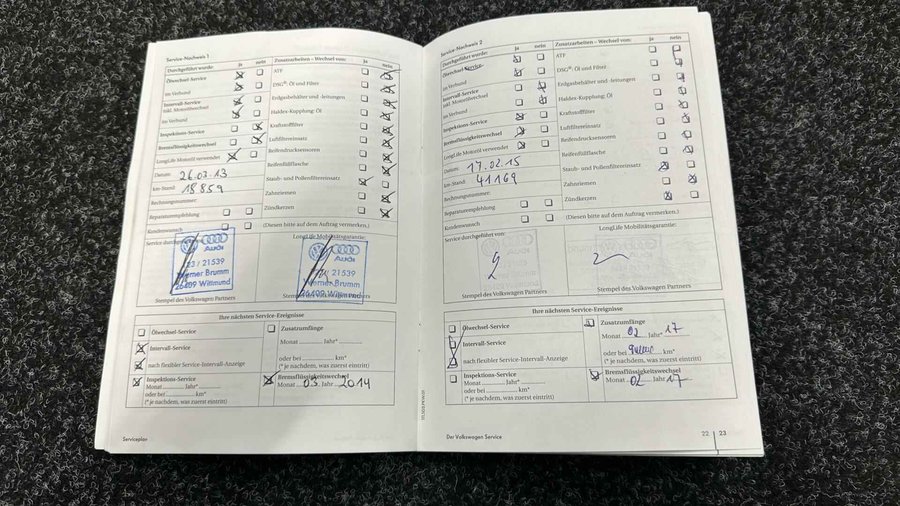 Service-Nachweis 1
Durchgeführt wurde: ja nein Zusatzarbeiten – Wechsel von: ja nein
Ölwechsel-Service
ATF
im Verbund
DSG®: Öl und Filter
Intervall-Service
inkl. Motorölwechsel
Erdgasbehälter und -leitungen
im Verbund
Haldex-Kupplung: Öl
Inspektions-Service
Kraftstofffilter
Bremsflüssigkeitswechsel
Luftfiltereinsatz
LongLife Motoröl verwendet
Reifendrucksensoren
Datum: 26.03.13
Reifenfüllflasche
km-Stand: 18859
Staub- und Pollenfiltereinsatz
Rechnungsnummer:
Zahnriemen
Reparaturempfehlung
Zündkerzen
Kundenwunsch
(Diesen bitte auf dem Auftrag vermerken.)
Service durchgeführt von:
LongLife Mobilitätsgarantie:
Audi
23 / 21539
Werner Brumm
26409 Wittmund
Audi
21539
Werner Brumm
26409 Wittmund
Stempel des Volkswagen Partners
Stempel des Volkswagen Partners
Ihre nächsten Service-Ereignisse
Ölwechsel-Service
Intervall-Service
nach flexibler Service-Intervall-Anzeige
Inspektions-Service
Monat Jahr*
oder bei km*
(* je nachdem, was zuerst eintritt)
Zusatzumfänge
Monat Jahr*
oder bei km*
(* je nachdem, was zuerst eintritt)
Bremsflüssigkeitswechsel
Monat 03 Jahr 2014
Serviceplan
Service-Nachweis 2
Durchgeführt wurde: ja nein Zusatzarbeiten – Wechsel von: ja nein
Ölwechsel-Service
ATF
im Verbund
DSG®: Öl und Filter
Intervall-Service
inkl. Motorölwechsel
Erdgasbehälter und -leitungen
im Verbund
Haldex-Kupplung: Öl
Inspektions-Service
Kraftstofffilter
Bremsflüssigkeitswechsel
Luftfiltereinsatz
LongLife Motoröl verwendet
Reifendrucksensoren
Datum: 17.02.15
Reifenfüllflasche
km-Stand: 41169
Staub- und Pollenfiltereinsatz
Rechnungsnummer:
Zahnriemen
Reparaturempfehlung
Zündkerzen
Kundenwunsch
(Diesen bitte auf dem Auftrag vermerken.)
Service durchgeführt von:
LongLife Mobilitätsgarantie:
Stempel des Volkswagen Partners
Stempel des Volkswagen Partners
Ihre nächsten Service-Ereignisse
Ölwechsel-Service
Intervall-Service
nach flexibler Service-Intervall-Anzeige
Inspektions-Service
Monat Jahr*
oder bei km*
(* je nachdem, was zuerst eintritt)
Zusatzumfänge
Monat 02 Jahr* 17
oder bei km*
(* je nachdem, was zuerst eintritt)
Bremsflüssigkeitswechsel
Monat 02 Jahr 17
Der Volkswagen Service
22 23